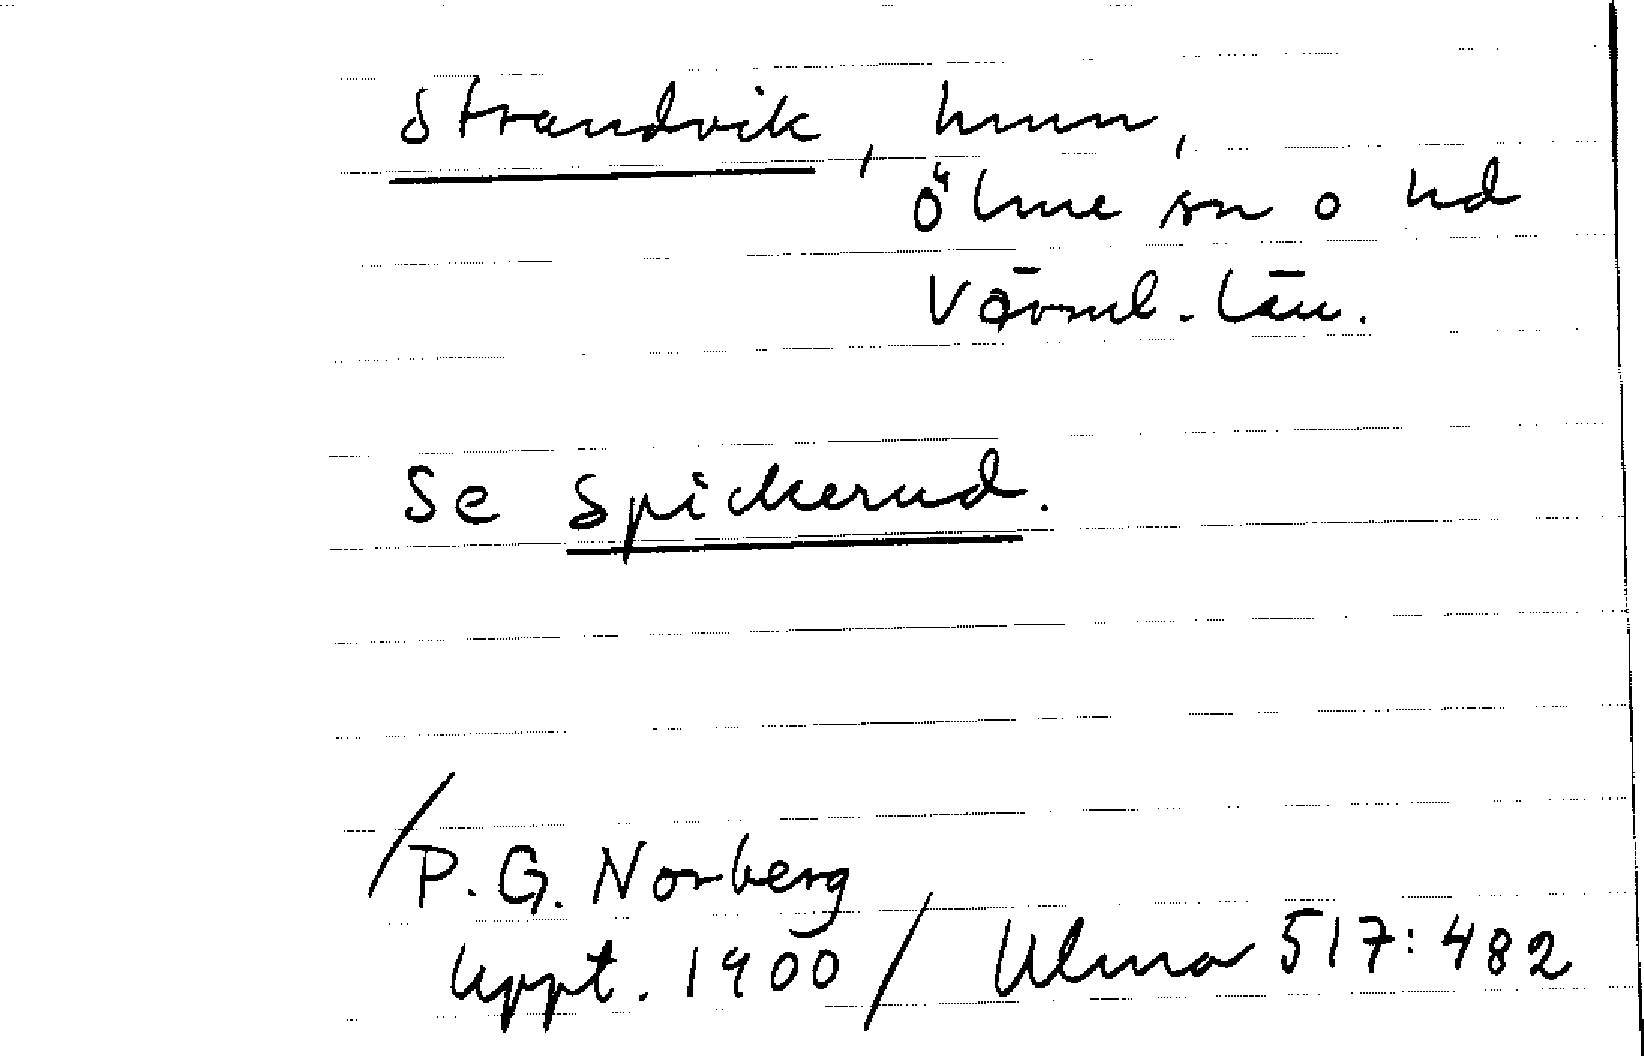 Strandvik, hmn,
Ölme sn o hd
Värml. län.
Se Spickerud.
/P.G. Norberg
uppt. 1900/ Ulma 517:482